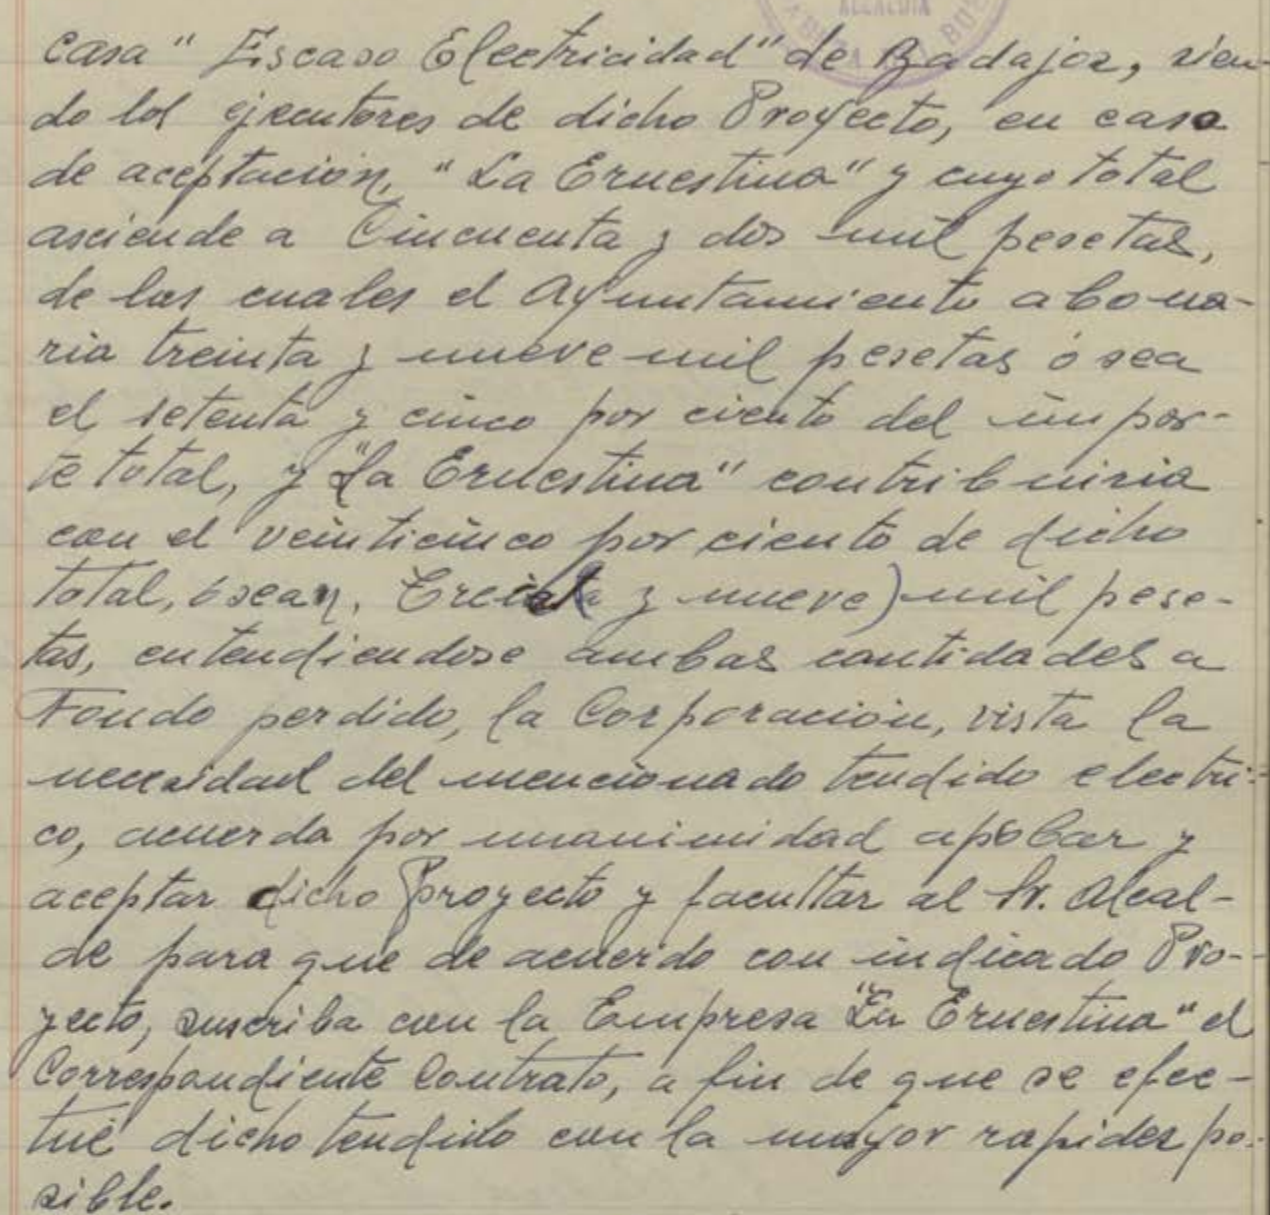 ALCALDIA
casa " Escaso Electricidad" de Badajoz, sien-
do los ejecutores de dicho Proyecto, en caso
de aceptación, "La Ernestina" y cuyo total
asciende a Cincuenta y dos mil pesetas,
de las cuales el Ayuntamiento abona-
ria treinta y nueve mil pesetas ó sea
el setenta y cinco por ciento del impor-
te total, y "La Ernestina" contribuiria
con el veinticinco por ciento de dicho
total, ó sean, Trece (y nueve) mil pese-
tas, entendiendose ambas cantidades a
Fondo perdido, la Corporación, vista la
necesidad del mencionado tendido electri-
co, acuerda por unanimidad apobar y
aceptar dicho Proyecto y facultar al Sr. Alcal-
de para que de acuerdo con indicado Pro-
yecto, suscriba con la Empresa "La Ernestina" el
Correspondiente Contrato, a fin de que se efec-
tué dicho tendido con la mayor rapidez po-
sible.